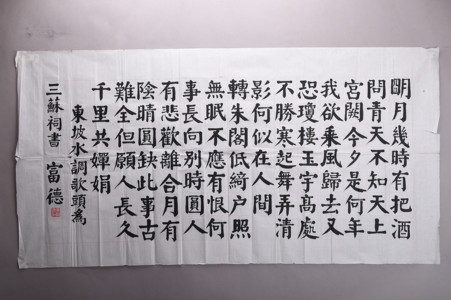 明月幾時有把酒
問青天不知天上
宮闕今夕是何年
我欲乘風歸去又
恐瓊樓玉宇高處
不勝寒起舞弄清
影何似在人間
轉朱閣低綺户照
無眠不應有恨何
事長向別時圓人
有悲歡離合月有
陰晴圓缺此事古
難全但願人長久
千里共嬋娟
東坡水調歌頭為
三蘇祠書 富德